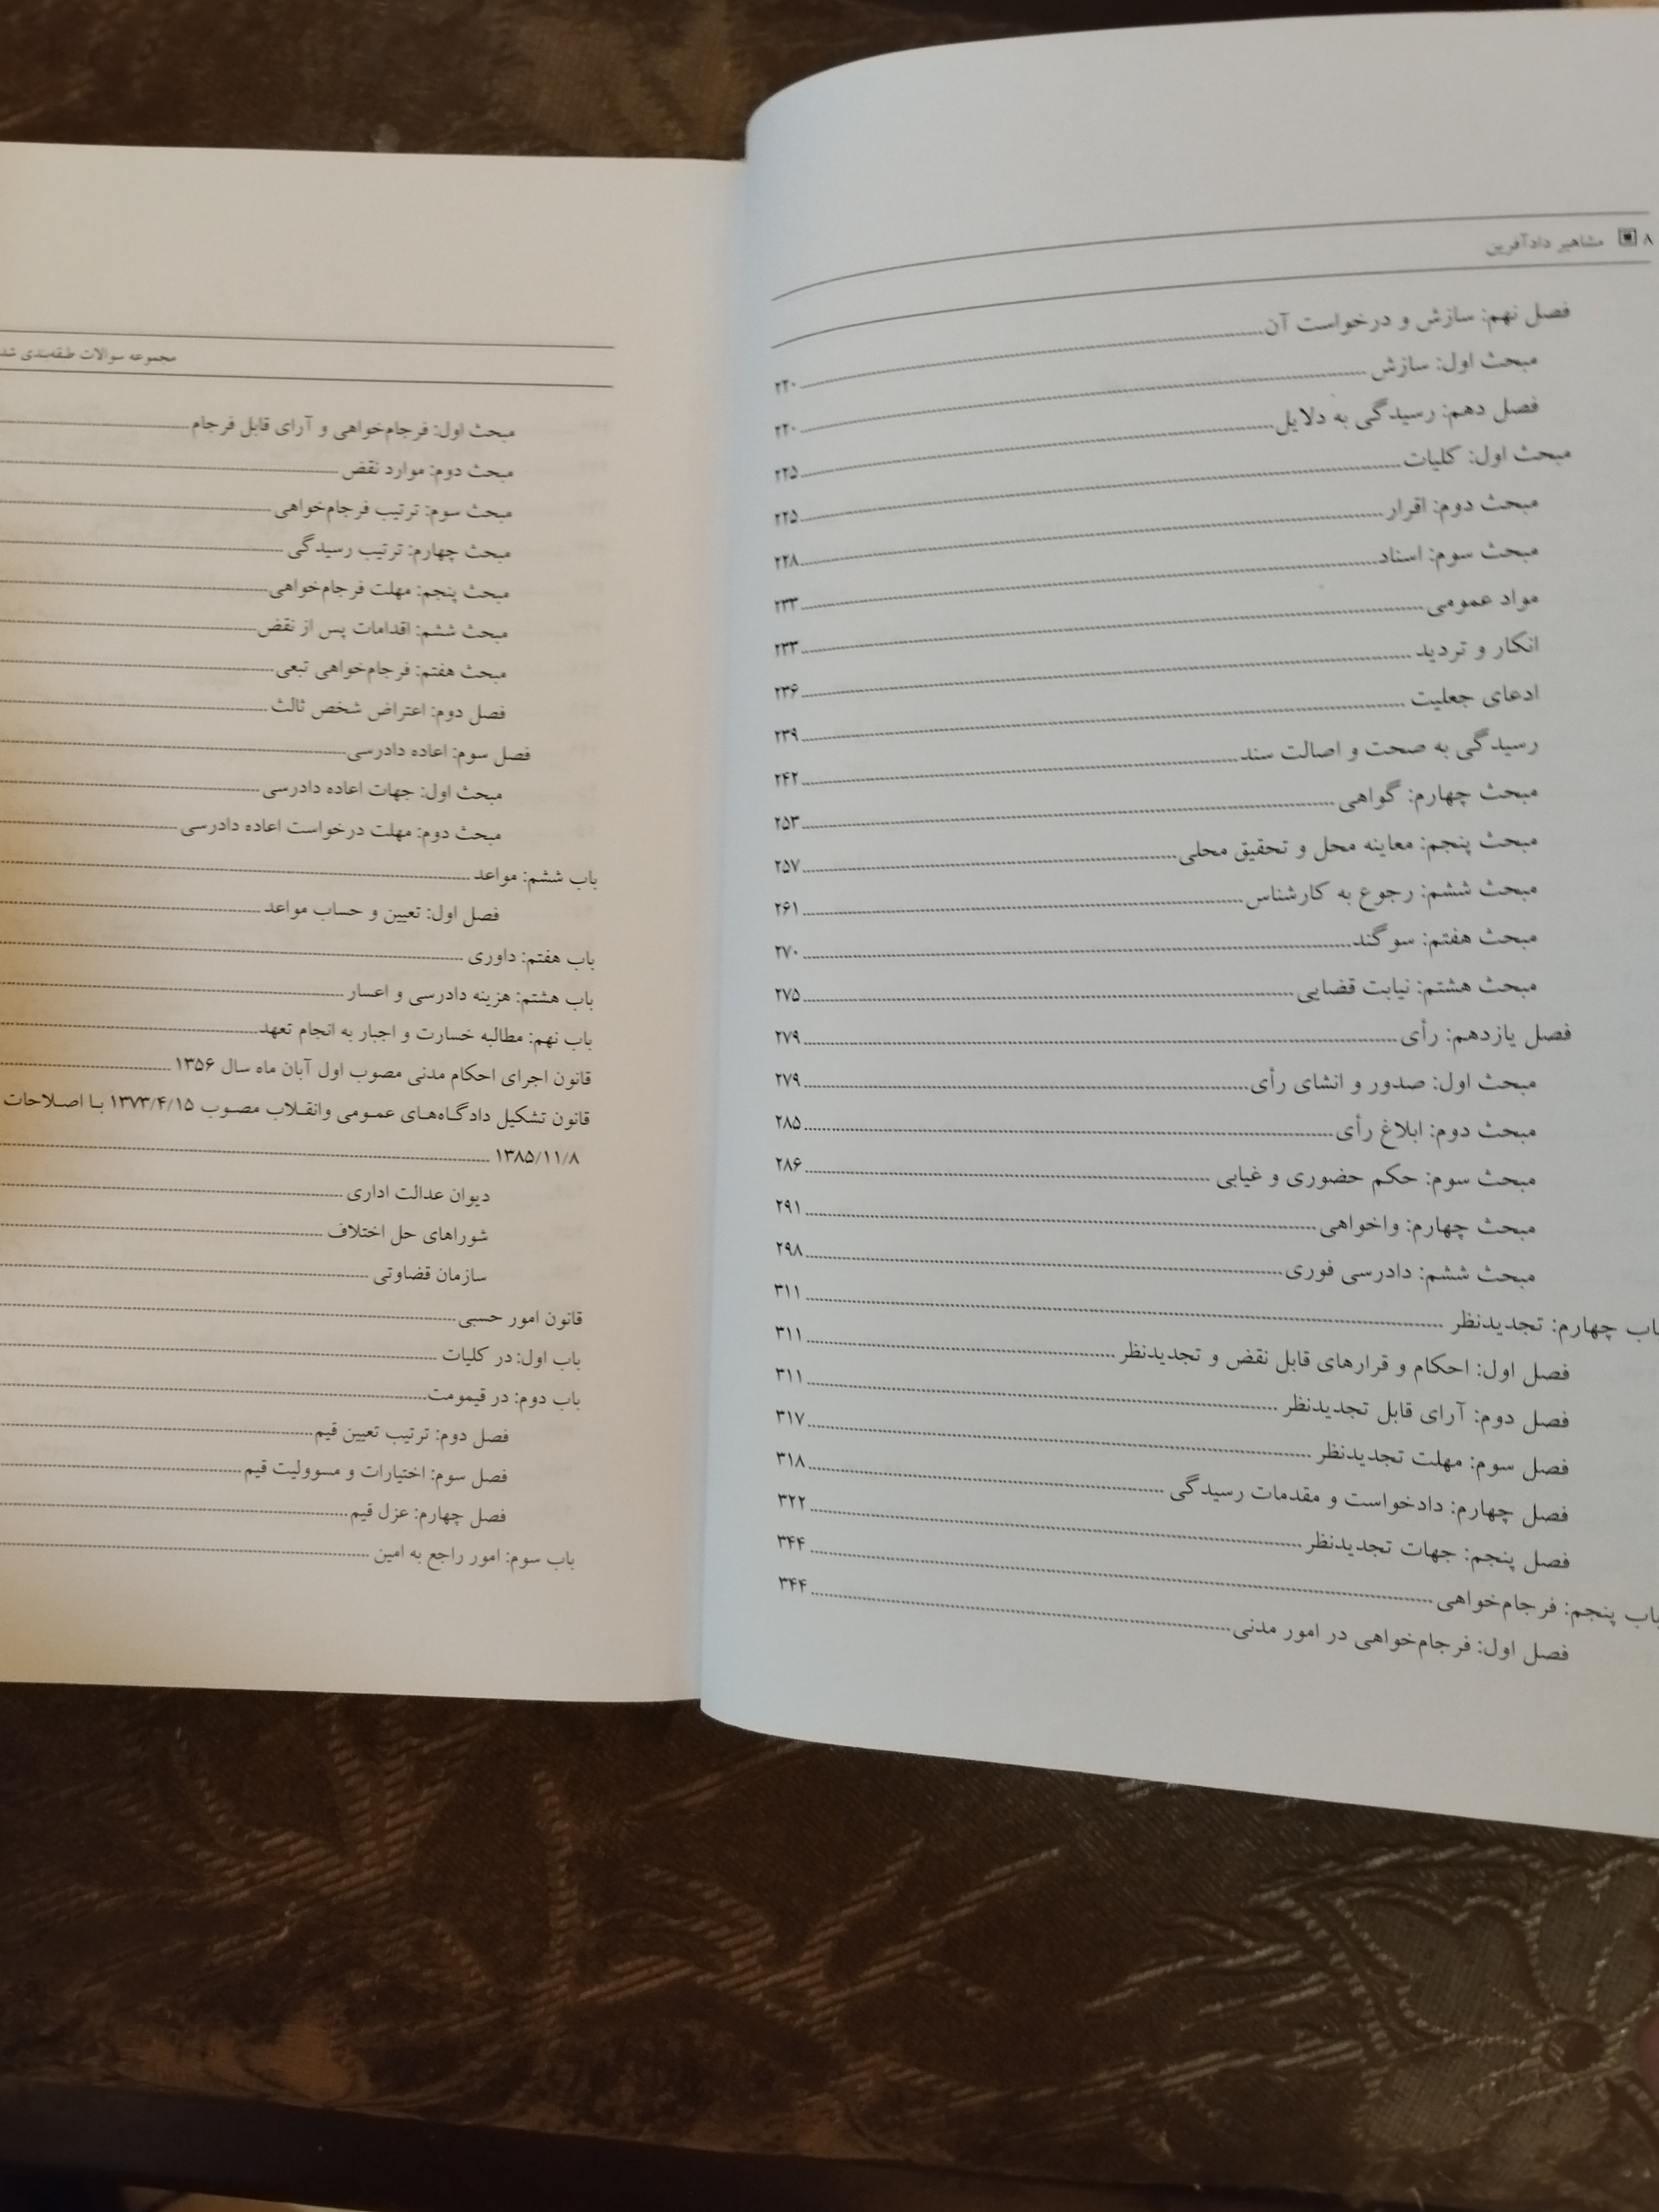 ۸ مشاهیر دادآفرین
فصل نهم: سازش و درخواست آن ۲۲۰
مبحث اول: سازش ۲۲۰
فصل دهم: رسیدگی به دلایل ۲۲۵
مبحث اول: کلیات ۲۲۵
مبحث دوم: اقرار ۲۲۸
مبحث سوم: اسناد ۲۳۳
مواد عمومی ۲۳۳
انکار و تردید ۲۳۶
ادعای جعلیت ۲۳۹
رسیدگی به صحت و اصالت سند ۲۴۲
مبحث چهارم: گواهی ۲۵۳
مبحث پنجم: معاینه محل و تحقیق محلی ۲۵۷
مبحث ششم: رجوع به کارشناس ۲۶۱
مبحث هفتم: سوگند ۲۷۰
مبحث هشتم: نیابت قضایی ۲۷۵
فصل یازدهم: رأی ۲۷۹
مبحث اول: صدور و انشای رأی ۲۷۹
مبحث دوم: ابلاغ رأی ۲۸۵
مبحث سوم: حکم حضوری و غیابی ۲۸۶
مبحث چهارم: واخواهی ۲۹۱
مبحث ششم: دادرسی فوری ۲۹۸
باب چهارم: تجدیدنظر ۳۱۱
فصل اول: احکام و قرارهای قابل نقض و تجدیدنظر ۳۱۱
فصل دوم: آرای قابل تجدیدنظر ۳۱۱
فصل سوم: مهلت تجدیدنظر ۳۱۷
فصل چهارم: دادخواست و مقدمات رسیدگی ۳۱۸
فصل پنجم: جهات تجدیدنظر ۳۲۲
باب پنجم: فرجام‌خواهی ۳۴۴
فصل اول: فرجام‌خواهی در امور مدنی ۳۴۴
مجموعه سوالات طبقه‌بندی
مبحث اول: فرجام‌خواهی و آرای قابل فرجام
مبحث دوم: موارد نقض
مبحث سوم: ترتیب فرجام‌خواهی
مبحث چهارم: ترتیب رسیدگی
مبحث پنجم: مهلت فرجام‌خواهی
مبحث ششم: اقدامات پس از نقض
مبحث هفتم: فرجام‌خواهی تبعی
فصل دوم: اعتراض شخص ثالث
فصل سوم: اعاده دادرسی
مبحث اول: جهات اعاده دادرسی
مبحث دوم: مهلت درخواست اعاده دادرسی
باب ششم: مواعد
فصل اول: تعیین و حساب مواعد
باب هفتم: داوری
باب هشتم: هزینه دادرسی و اعسار
باب نهم: مطالبه خسارت و اجبار به انجام تعهد
قانون اجرای احکام مدنی مصوب اول آبان ماه سال ۱۳۵۶
قانون تشکیل دادگاه‌های عمومی وانقلاب مصوب ۱۳۷۳/۴/۱۵ با اصلاحات
۱۳۸۵/۱۱/۸
دیوان عدالت اداری
شوراهای حل اختلاف
سازمان قضاوتی
قانون امور حسبی
باب اول: در کلیات
باب دوم: در قیمومت
فصل دوم: ترتیب تعیین قیم
فصل سوم: اختیارات و مسوولیت قیم
فصل چهارم: عزل قیم
باب سوم: امور راجع به امین